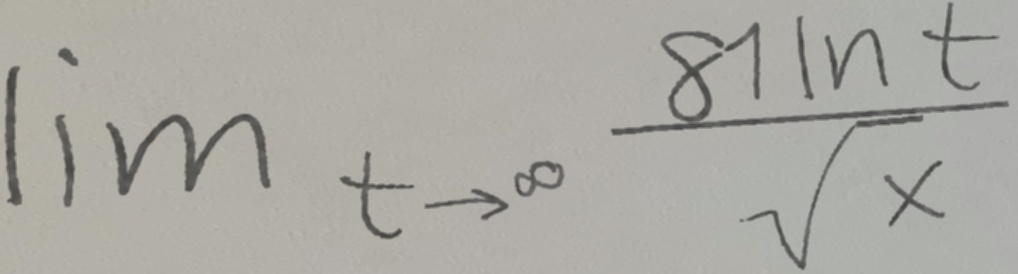 lim t→∞ 81 ln t / √x